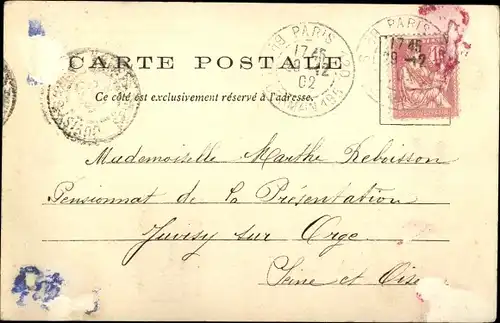 PARIS
17 45
29 -12
02
PARIS
17 45
29 -12
15
CARTE POSTALE
Ce côté est exclusivement réservé à l'adresse.
Mademoiselle Marthe Reboisson
Pensionnat de la Présentation
Juvisy sur Orge
Seine et Oise